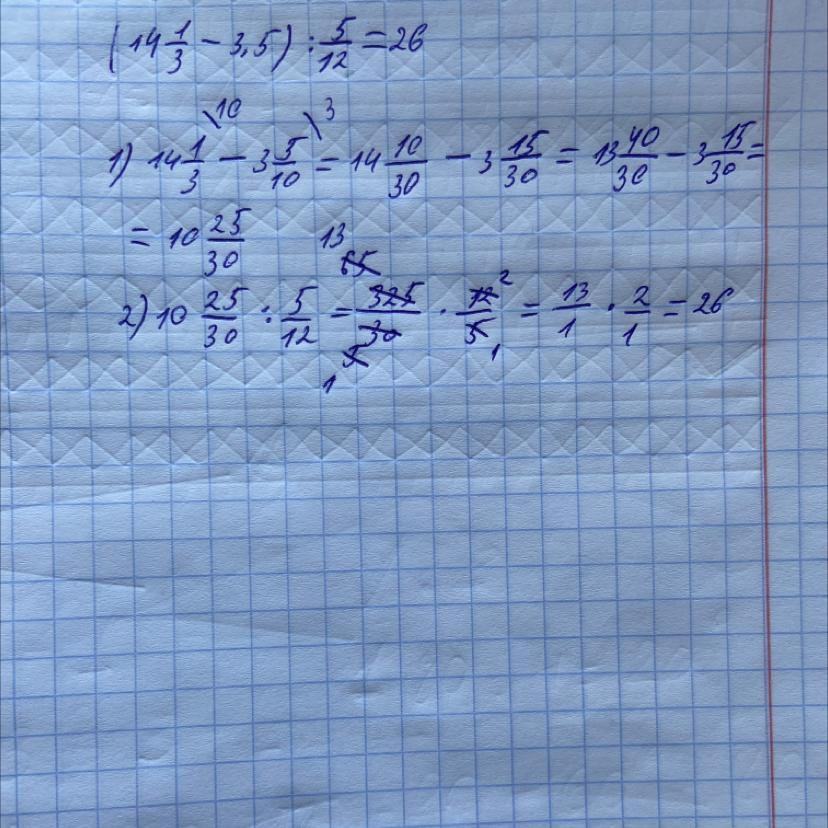 (14 1/3 − 3,5) : 5/12 = 26
10 3
1) 14 1/3 − 3 5/10 = 14 10/30 − 3 15/30 = 13 40/30 − 3 15/30 =
= 10 25/30
13
65
2) 10 25/30 : 5/12 = 325/30 · 12/5 = 13/1 · 2/1 = 26
2
5 1
1